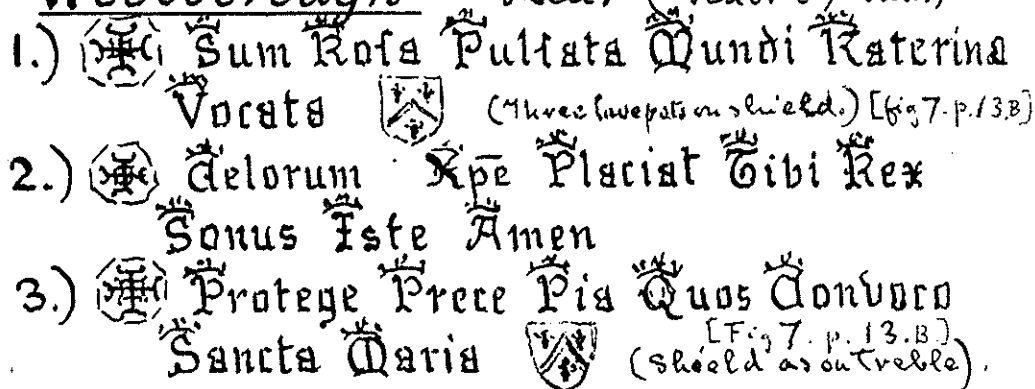 1.) Sum Rosa Pulsata Mundi Katerina
Vocata (Three lavepots on shield.) [fig 7. p. 13.B]
2.) Celorum Xpē Placiat Tibi Rex
Sonus Iste Amen
3.) Protege Prece Pia Quos Convoco
[Fig 7. p. 13.B.]
Sancta Maria (Shield as on Treble).